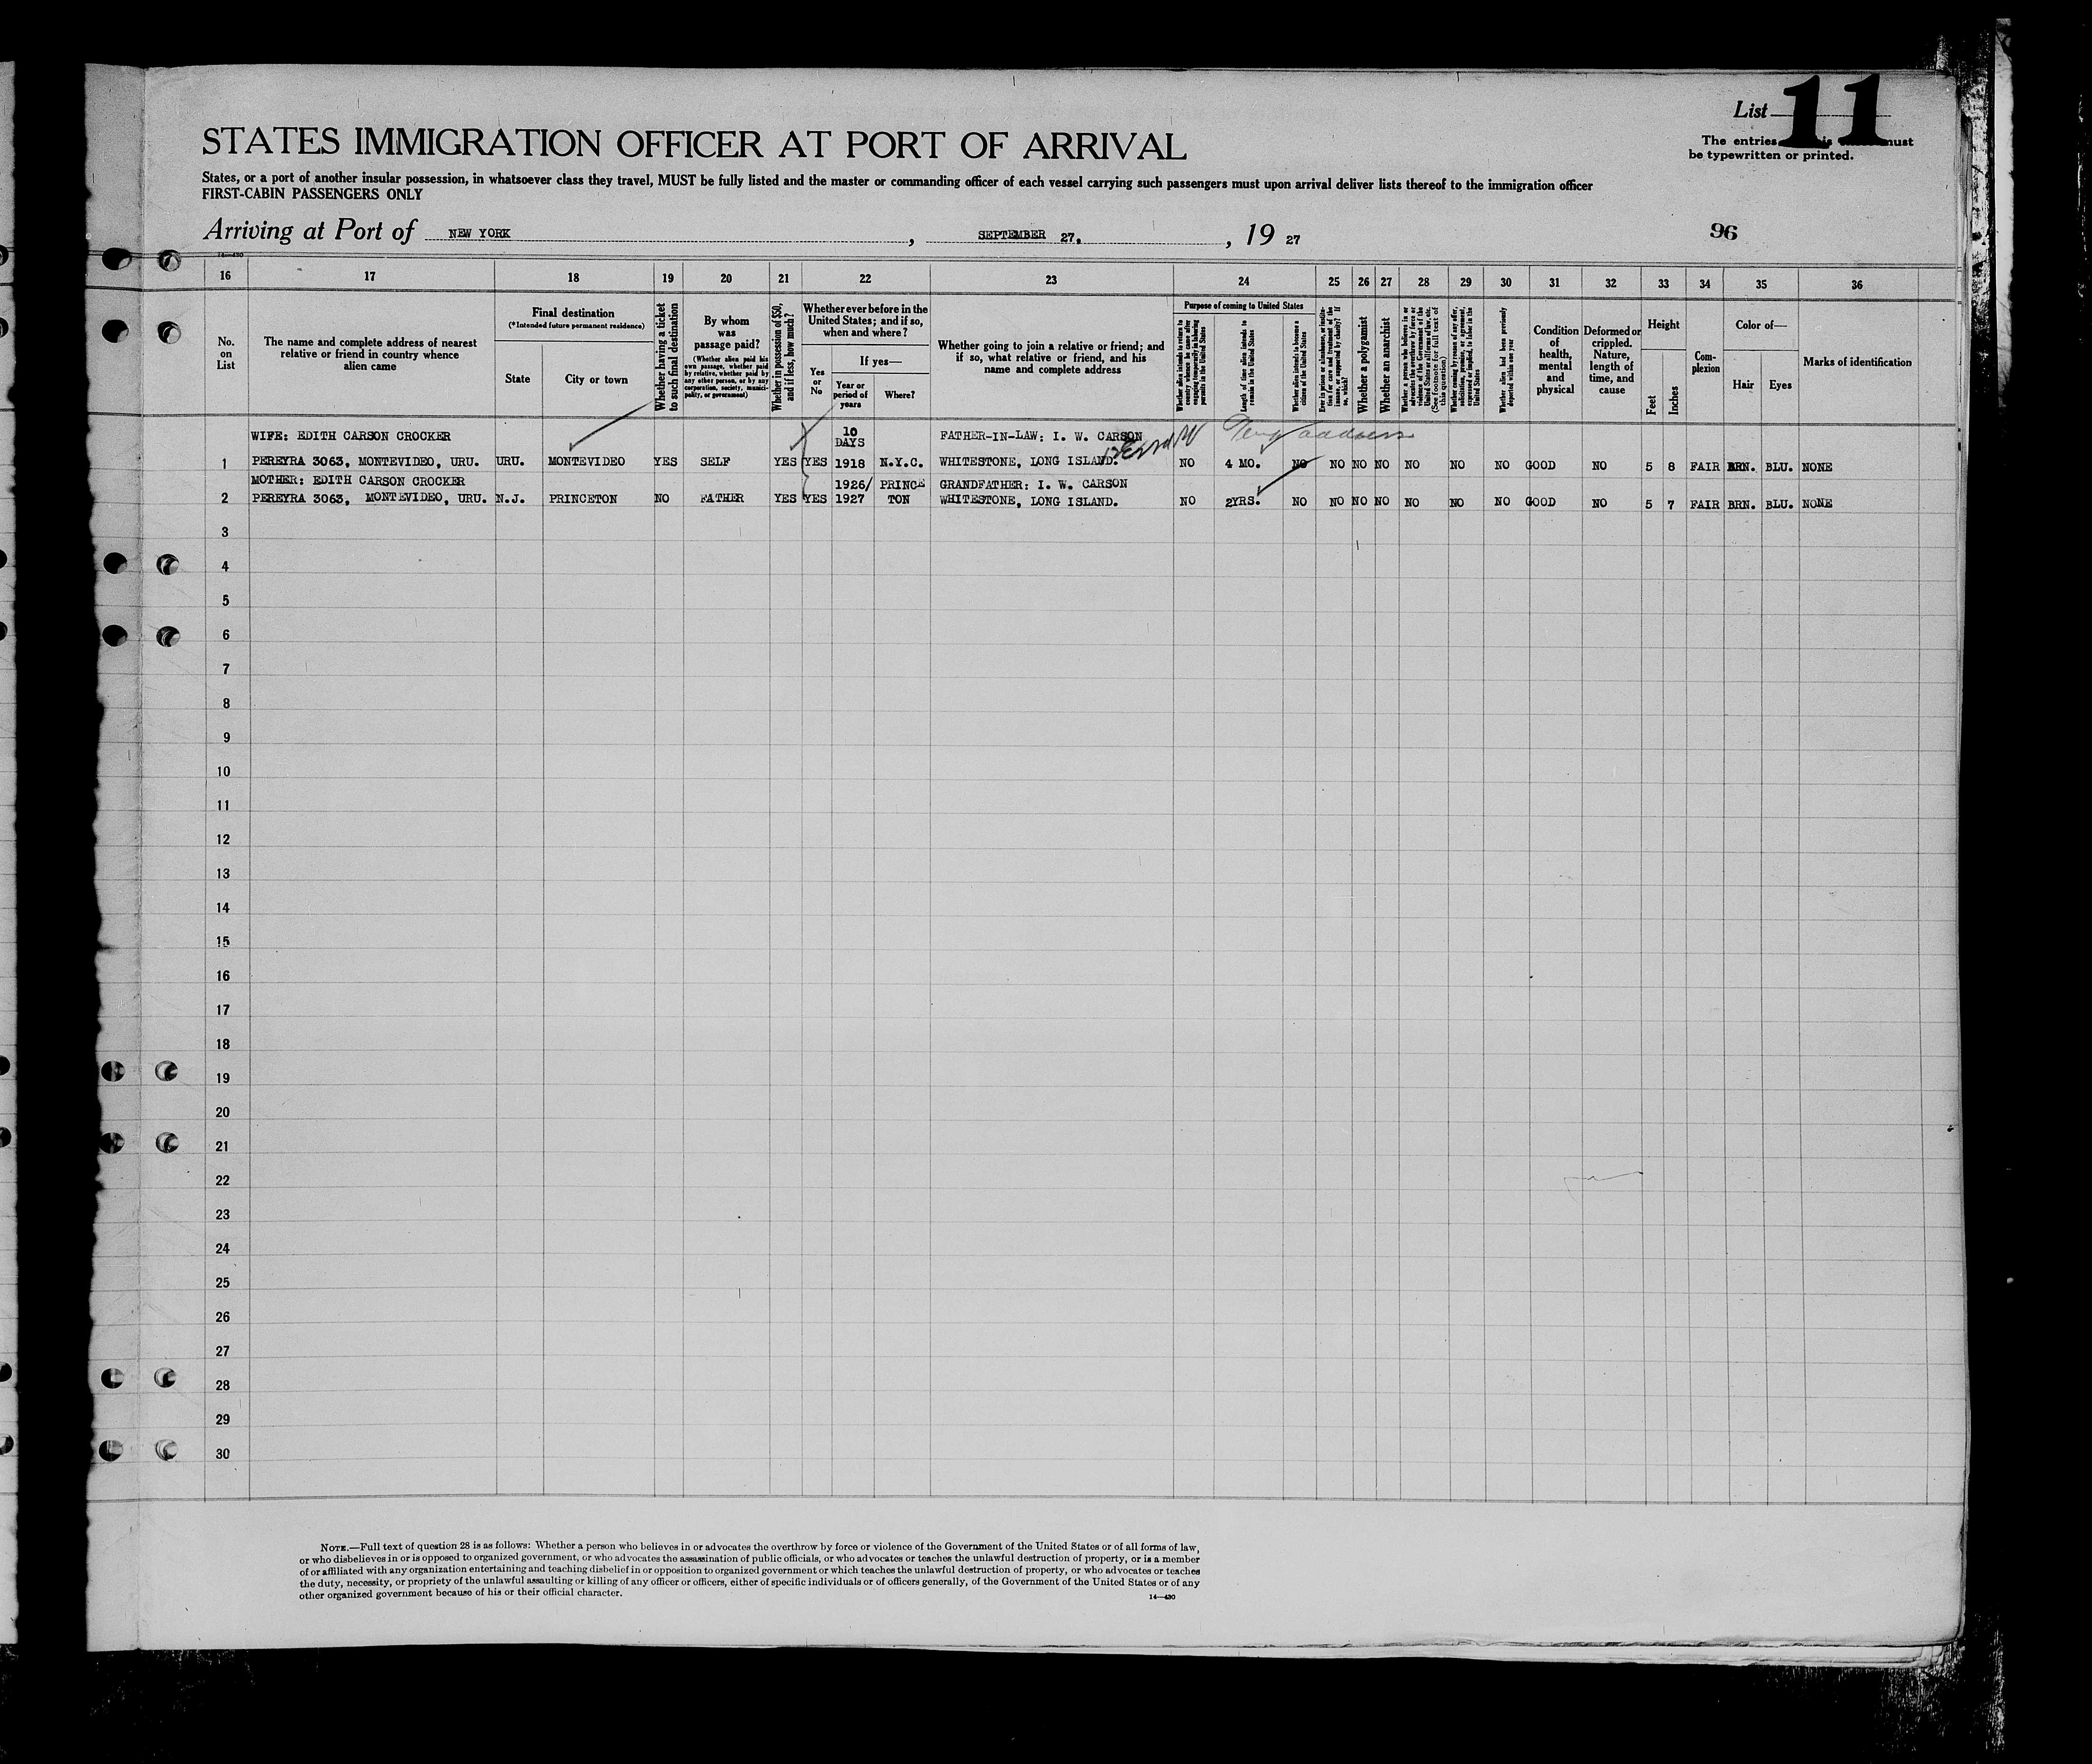 List 11
STATES IMMIGRATION OFFICER AT PORT OF ARRIVAL
The entries must
be typewritten or printed.
States, or a port of another insular possession, in whatsoever class they travel, MUST be fully listed and the master or commanding officer of each vessel carrying such passengers must upon arrival deliver lists thereof to the immigration officer
FIRST-CABIN PASSENGERS ONLY
Arriving at Port of NEW YORK, SEPTEMBER 27., 19 27
96
14—430
16 17 18 19 20 21 22 23 24 25 26 27 28 29 30 31 32 33 34 35 36
No. on List
The name and complete address of nearest relative or friend in country whence alien came
Final destination
(*Intended future permanent residence)
State
City or town
Whether having a ticket to such final destination
By whom was passage paid?
(Whether alien paid his own passage, whether paid by relative, whether paid by any other person, or by any corporation, society, municipality, or government)
Whether in possession of $50, and if less, how much?
Whether ever before in the United States; and if so, when and where?
Yes or No
If yes—
Year or period of years
Where?
Whether going to join a relative or friend; and if so, what relative or friend, and his name and complete address
Purpose of coming to United States
Whether alien intends to return to country whence he came after engaging temporarily in laboring pursuits in the United States
Length of time alien intends to remain in the United States
Whether alien intends to become a citizen of the United States
Whether a polygamist
Whether an anarchist
(See footnote for full text of this question)
Whether alien had been previously deported within one year
Condition of health, mental and physical
Deformed or crippled. Nature, length of time, and cause
Height
Feet
Inches
Complexion
Color of—
Hair
Eyes
Marks of identification
WIFE: EDITH CARSON CROCKER 10 DAYS FATHER-IN-LAW: I. W. CARSON
1 PEREYRA 3063, MONTEVIDEO, URU. URU. MONTEVIDEO YES SELF YES YES 1918 N.Y.C. WHITESTONE, LONG ISLAND. NO 4 MO. NO NO NO NO NO NO NO GOOD NO 5 8 FAIR BRN. BLU. NONE
MOTHER: EDITH CARSON CROCKER 1926/ PRINCE GRANDFATHER: I. W. CARSON
2 PEREYRA 3063, MONTEVIDEO, URU. N.J. PRINCETON NO FATHER YES YES 1927 TON WHITESTONE, LONG ISLAND. NO 2YRS. NO NO NO NO NO NO NO GOOD NO 5 7 FAIR BRN. BLU. NONE
3
4
5
6
7
8
9
10
11
12
13
14
15
16
17
18
19
20
21
22
23
24
25
26
27
28
29
30
NOTE.—Full text of question 28 is as follows: Whether a person who believes in or advocates the overthrow by force or violence of the Government of the United States or of all forms of law,
or who disbelieves in or is opposed to organized government, or who advocates the assassination of public officials, or who advocates or teaches the unlawful destruction of property, or is a member
of or affiliated with any organization entertaining and teaching disbelief in or opposition to organized government or which teaches the unlawful destruction of property, or who advocates or teaches
the duty, necessity, or propriety of the unlawful assaulting or killing of any officer or officers, either of specific individuals or of officers generally, of the Government of the United States or of any
other organized government because of his or their official character.
14—430